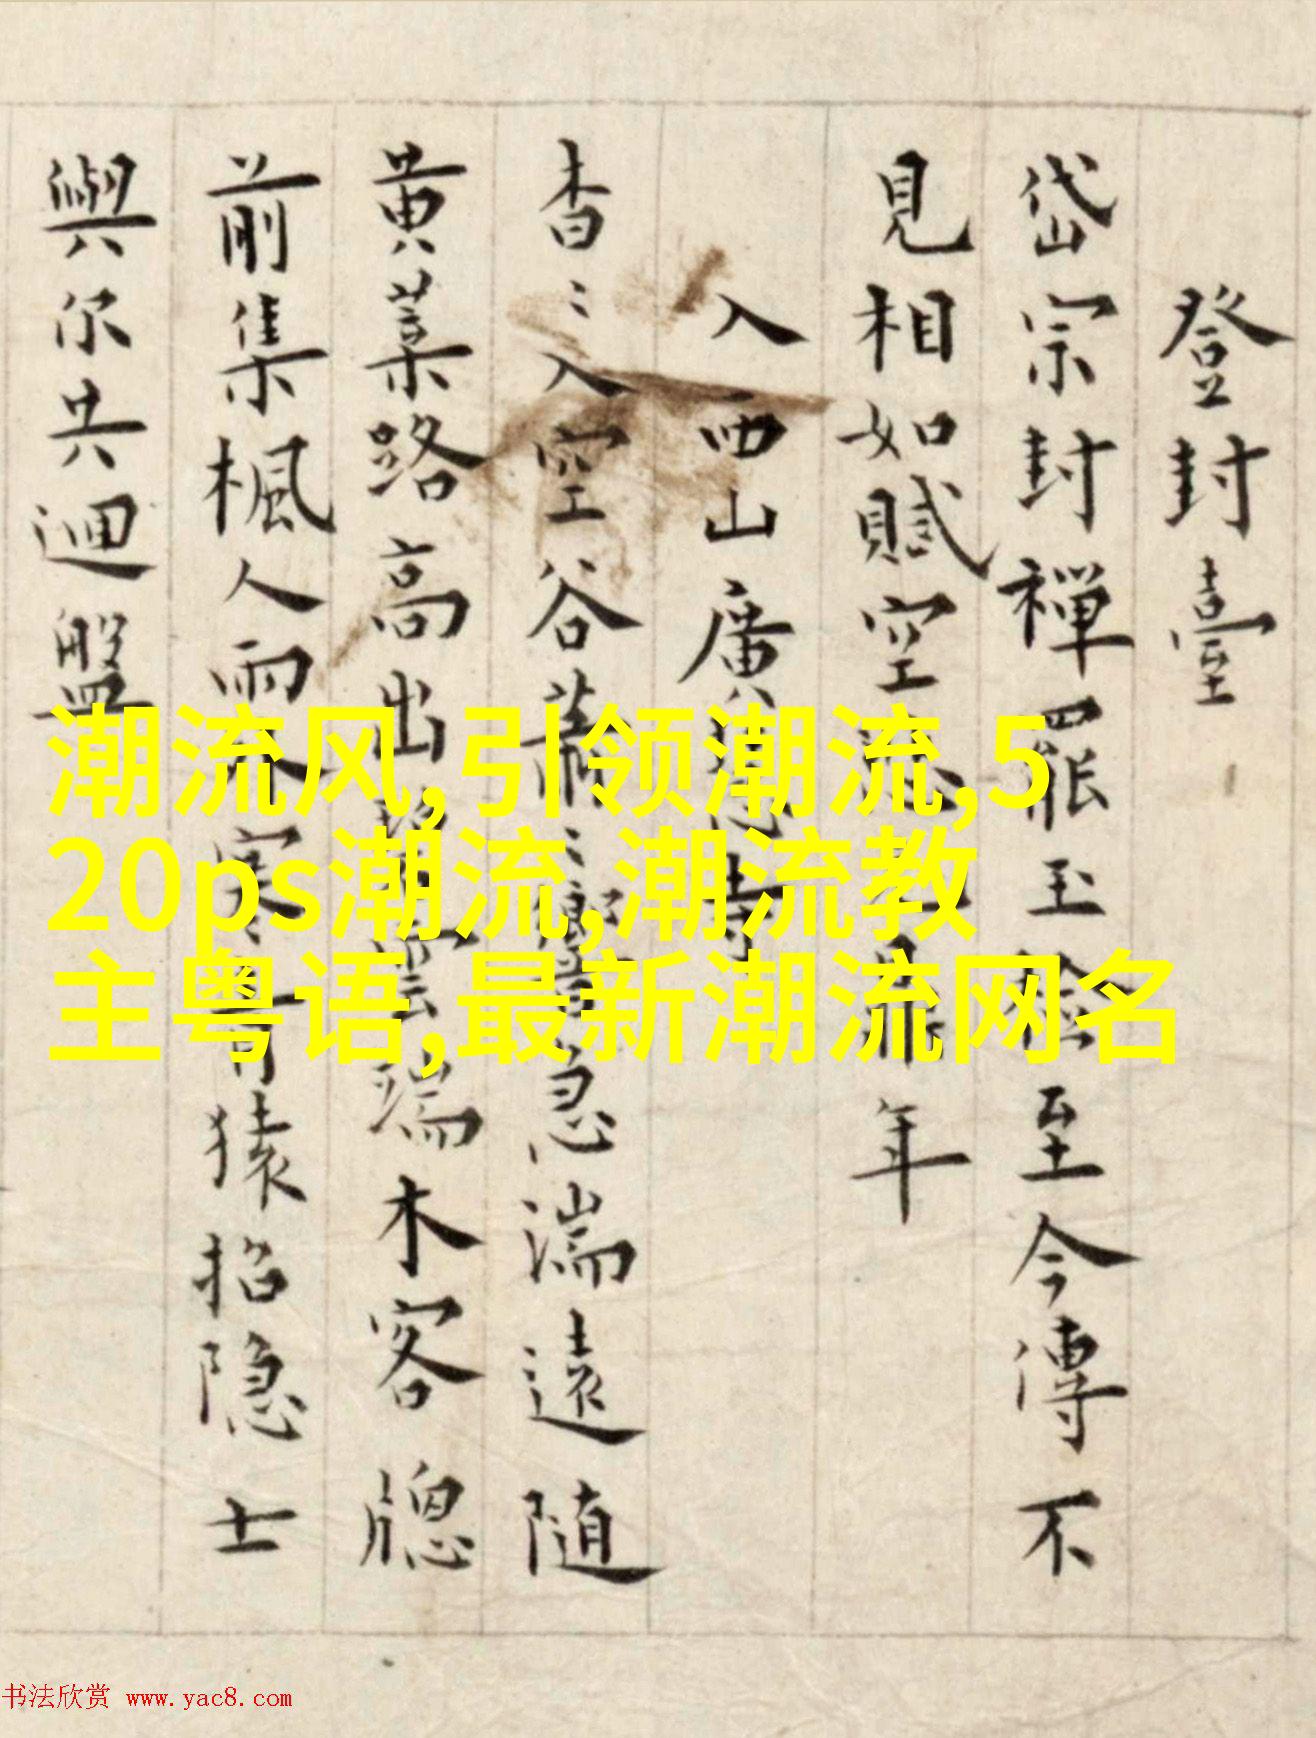 登封臺
岱宗封禪罷玉檢至今傳不
見相如賦空 年
入西山廣 寺
杳〻入空谷蕭〻響急湍遠隨
黄葉路高出 雲端木客牕
前集楓人雨 寒 猿招隐士
與尔共迴盤
潮流风,引领潮流,5
20ps潮流,潮流教
主粤语,最新潮流网名
书法欣赏 www.yac8.com